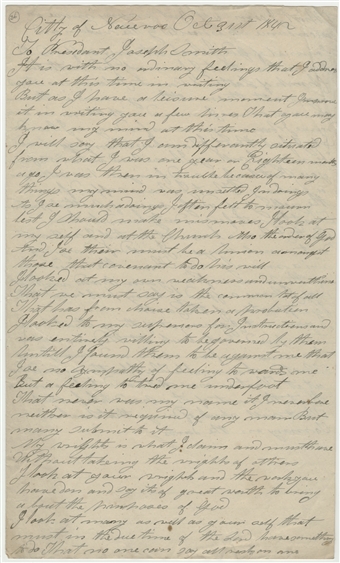 Citty of Nauvoo Oct 31st 1842
To Presidant Joseph Smith
It is with no ordinary feelings that I address
you at this time in writing
But as I have a leisure moment I
it in writing you a few lines that you may
know my mind at this time
I will say that I am differently situated
from what I was one year or Eighteen months
ago, I was then in trouble because of many
things my mind was
to I often felt to mourn
lest I should make I look at
my self and at the Church Also the order of God
And I see their must be a Union amongst
those that covenant to do his will
I looked at my own weakness and
That we must say is the common lot of all
That has from choise taken a probation
I look to my superiors for Instructions and
was entirely willing to be governed by them
Until I found them to be against me that
I see no sympathy of feeling to wards me
But a feeling to tred me underfoot
That never was my name it I never have
neither is it required of any man But
many submit to it
My rights is what I claim and must have
Without taking the rights of others
I look at your rights and the
and say its of great worth to bring
about the purposes of God
I look at many as well as your self that
must in the due time of the Lord have something
to do that no one can say